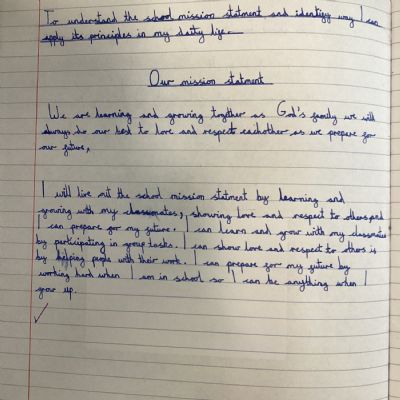 To understand the school mission statment and identify way I can
apply its principles in my daily life.
Our mission statment
We are learning and growing together as God's family we will
always do our best to love and respect eachother as we prepare for
our future,
I will live out the school mission statment by learning and
growing with my classmates, showing love and respect to others, and
I can prepare for my future. I can learn and grow with my classmates
by participating in group tasks. I can show love and respect to others is
by helping people with their work. I can prepare for my future by
working hard when I am in school so I can be anything when I
grow up.